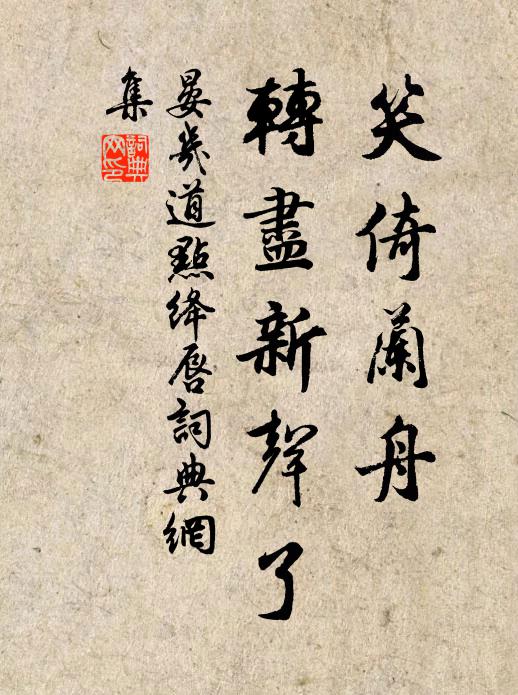 笑倚蘭舟
轉盡新聲了
晏幾道點絳唇詞典網
集
詞典
网印